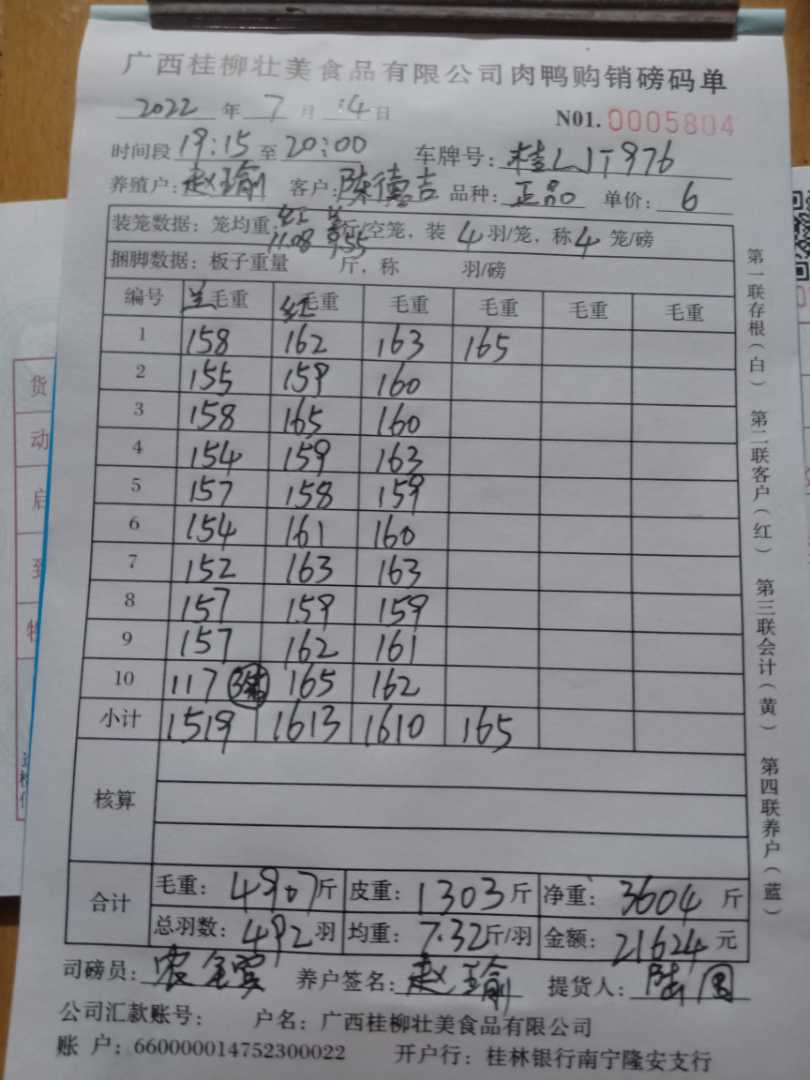 广西桂柳壮美食品有限公司肉鸭购销磅码单
2022 年 7 月 14 日 N01. 0005804
时间段 19:15 至 20:00 车牌号:
养殖户: 赵瑜 客户: 陈德吉 品种: 正品 单价: 6
装笼数据: 笼均重: 红 11.08 兰 9.55 斤/空笼, 装 4 羽/笼, 称 4 笼/磅
捆脚数据: 板子重量 斤, 称 羽/磅
编号 兰毛重 红毛重 毛重 毛重 毛重 毛重
1 158 162 163 165
2 155 159 160
3 158 165 160
4 154 159 163
5 157 158 159
6 154 161 160
7 152 163 163
8 157 159 159
9 157 162 161
10 117 165 162
小计 1519 1613 1610 165
核算
合计 毛重: 4907 斤 皮重: 1303 斤 净重: 3604 斤
总羽数: 492 羽 均重: 7.32 斤/羽 金额: 21624 元
司磅员: 养户签名: 赵瑜 提货人:
公司汇款账号: 户名: 广西桂柳壮美食品有限公司
账 户: 660000014752300022 开户行: 桂林银行南宁隆安支行
第一联存根(白) 第二联客户(红) 第三联会计(黄) 第四联养户(蓝)
货
动
启
到